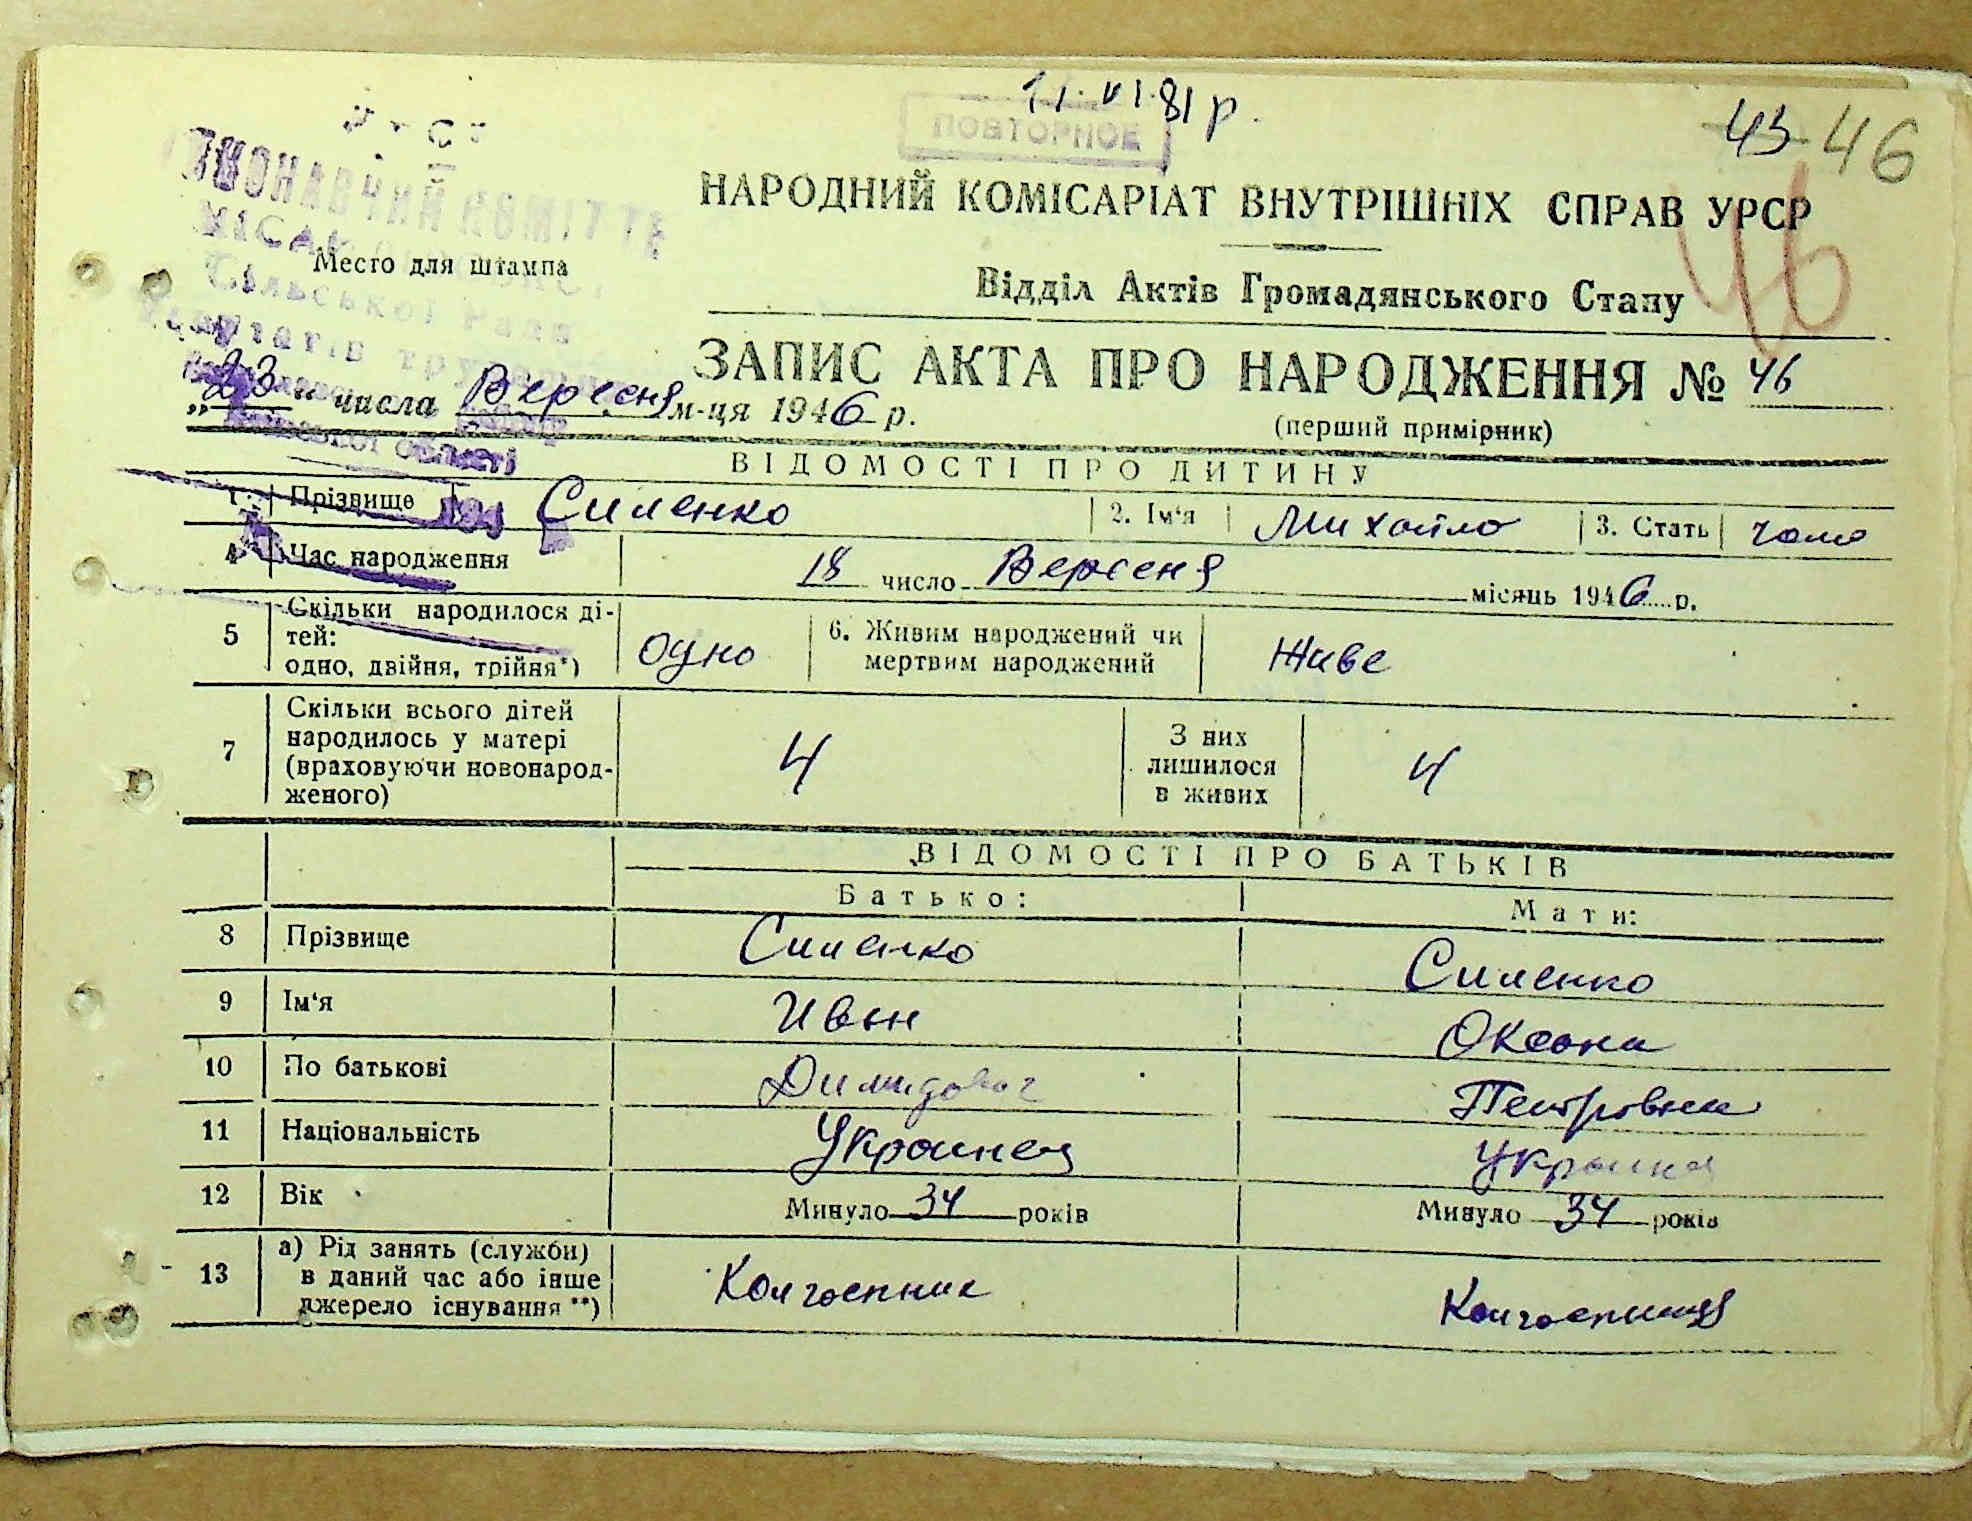 11.VI.81 р.
ПОВТОРНОЕ
43 46
НАРОДНИЙ КОМІСАРІАТ ВНУТРІШНІХ СПРАВ УРСР
46
Место для штампа
Сільської Ради
Відділ Актів Громадянського Стану
ЗАПИС АКТА ПРО НАРОДЖЕННЯ № 46
„23“ числа Вересня м-ця 1946 р.
(перший примірник)
ВІДОМОСТІ ПРО ДИТИНУ
1. Прізвище Силенко 2. Ім‘я Михайло 3. Стать чоло
4 Час народження 18 число Вересня місяць 1946 р.
5 Скільки народилося дітей: одно, двійня, трійня*) одно 6. Живим народжений чи мертвим народжений Живе
7 Скільки всього дітей народилось у матері (враховуючи новонародженого) 4 З них лишилося в живих 4
ВІДОМОСТІ ПРО БАТЬКІВ
Батько: Мати:
8 Прізвище Силенко Силенко
9 Ім‘я Иван Оксана
10 По батькові Димидович Петровна
11 Національність Украинец Украинка
12 Вік Минуло 34 років Минуло 34 років
13 а) Рід занять (служби) в даний час або інше джерело існування **) Колгоспник Колгоспниця